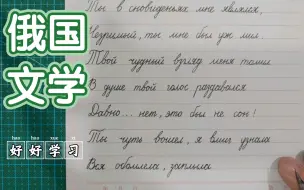 俄国
文学
hǎo hǎo xué xí
好好学习
Ты в сновиденьях мне являлся,
Незримый, ты мне был уж мил.
Твой чудный взгляд меня томил
В душе твой голос раздавался
Давно... нет, это был не сон!
Ты чуть вошел, я вмиг узнала
Вся обомлела, запылала